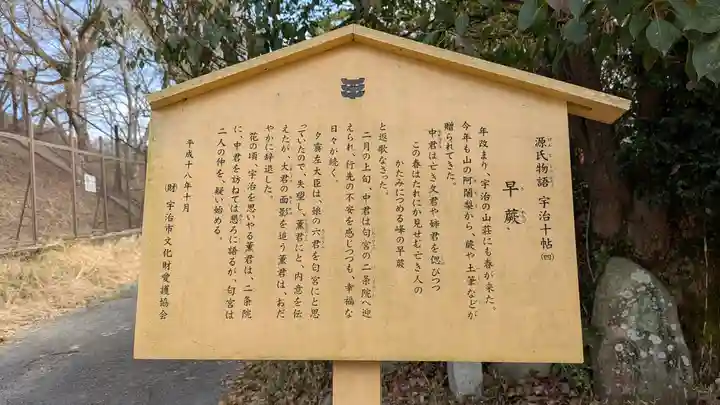 源氏物語 宇治十帖(四)
早蕨
年改まり、宇治の山荘にも春が来た。
今年も山の阿闍梨から、蕨や土筆などが
贈られてきた。
中君は亡き父君や姉君を偲びつつ
この春はたれにか見せむ亡き人の
かたみにつめる峰の早蕨
と返歌なさった。
二月の上旬、中君は匂宮の二条院へ迎
えられ、行先の不安を感じつつも、幸福な
日々が続く。
夕霧左大臣は、娘の六君を匂宮にと思
っていたので、失望し、薫君にと、内意を伝
えたが、大君の面影を追う薫君は、おだ
やかに辞退した。
花の頃、宇治を思いやる薫君は、二条院
に、中君を訪ねては懇ろに語るが、匂宮は
二人の仲を、疑い始める。
平成十八年十月
(財)宇治市文化財愛護協会